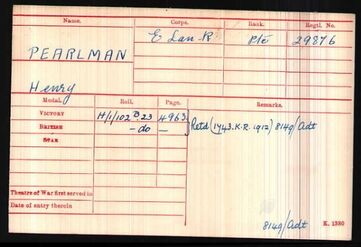 Name. Corps. Rank. Regtl. No.
PEARLMAN E Lan. R Pte 29876
Henry
Medal. Roll. Page. Remarks.
VICTORY H/1/102 B23 4963 Retd (1743. K.R. 1912) 8149/Adt
BRITISH -do-
STAR
Theatre of War first served in
Date of entry therein
8149/Adt K. 1380